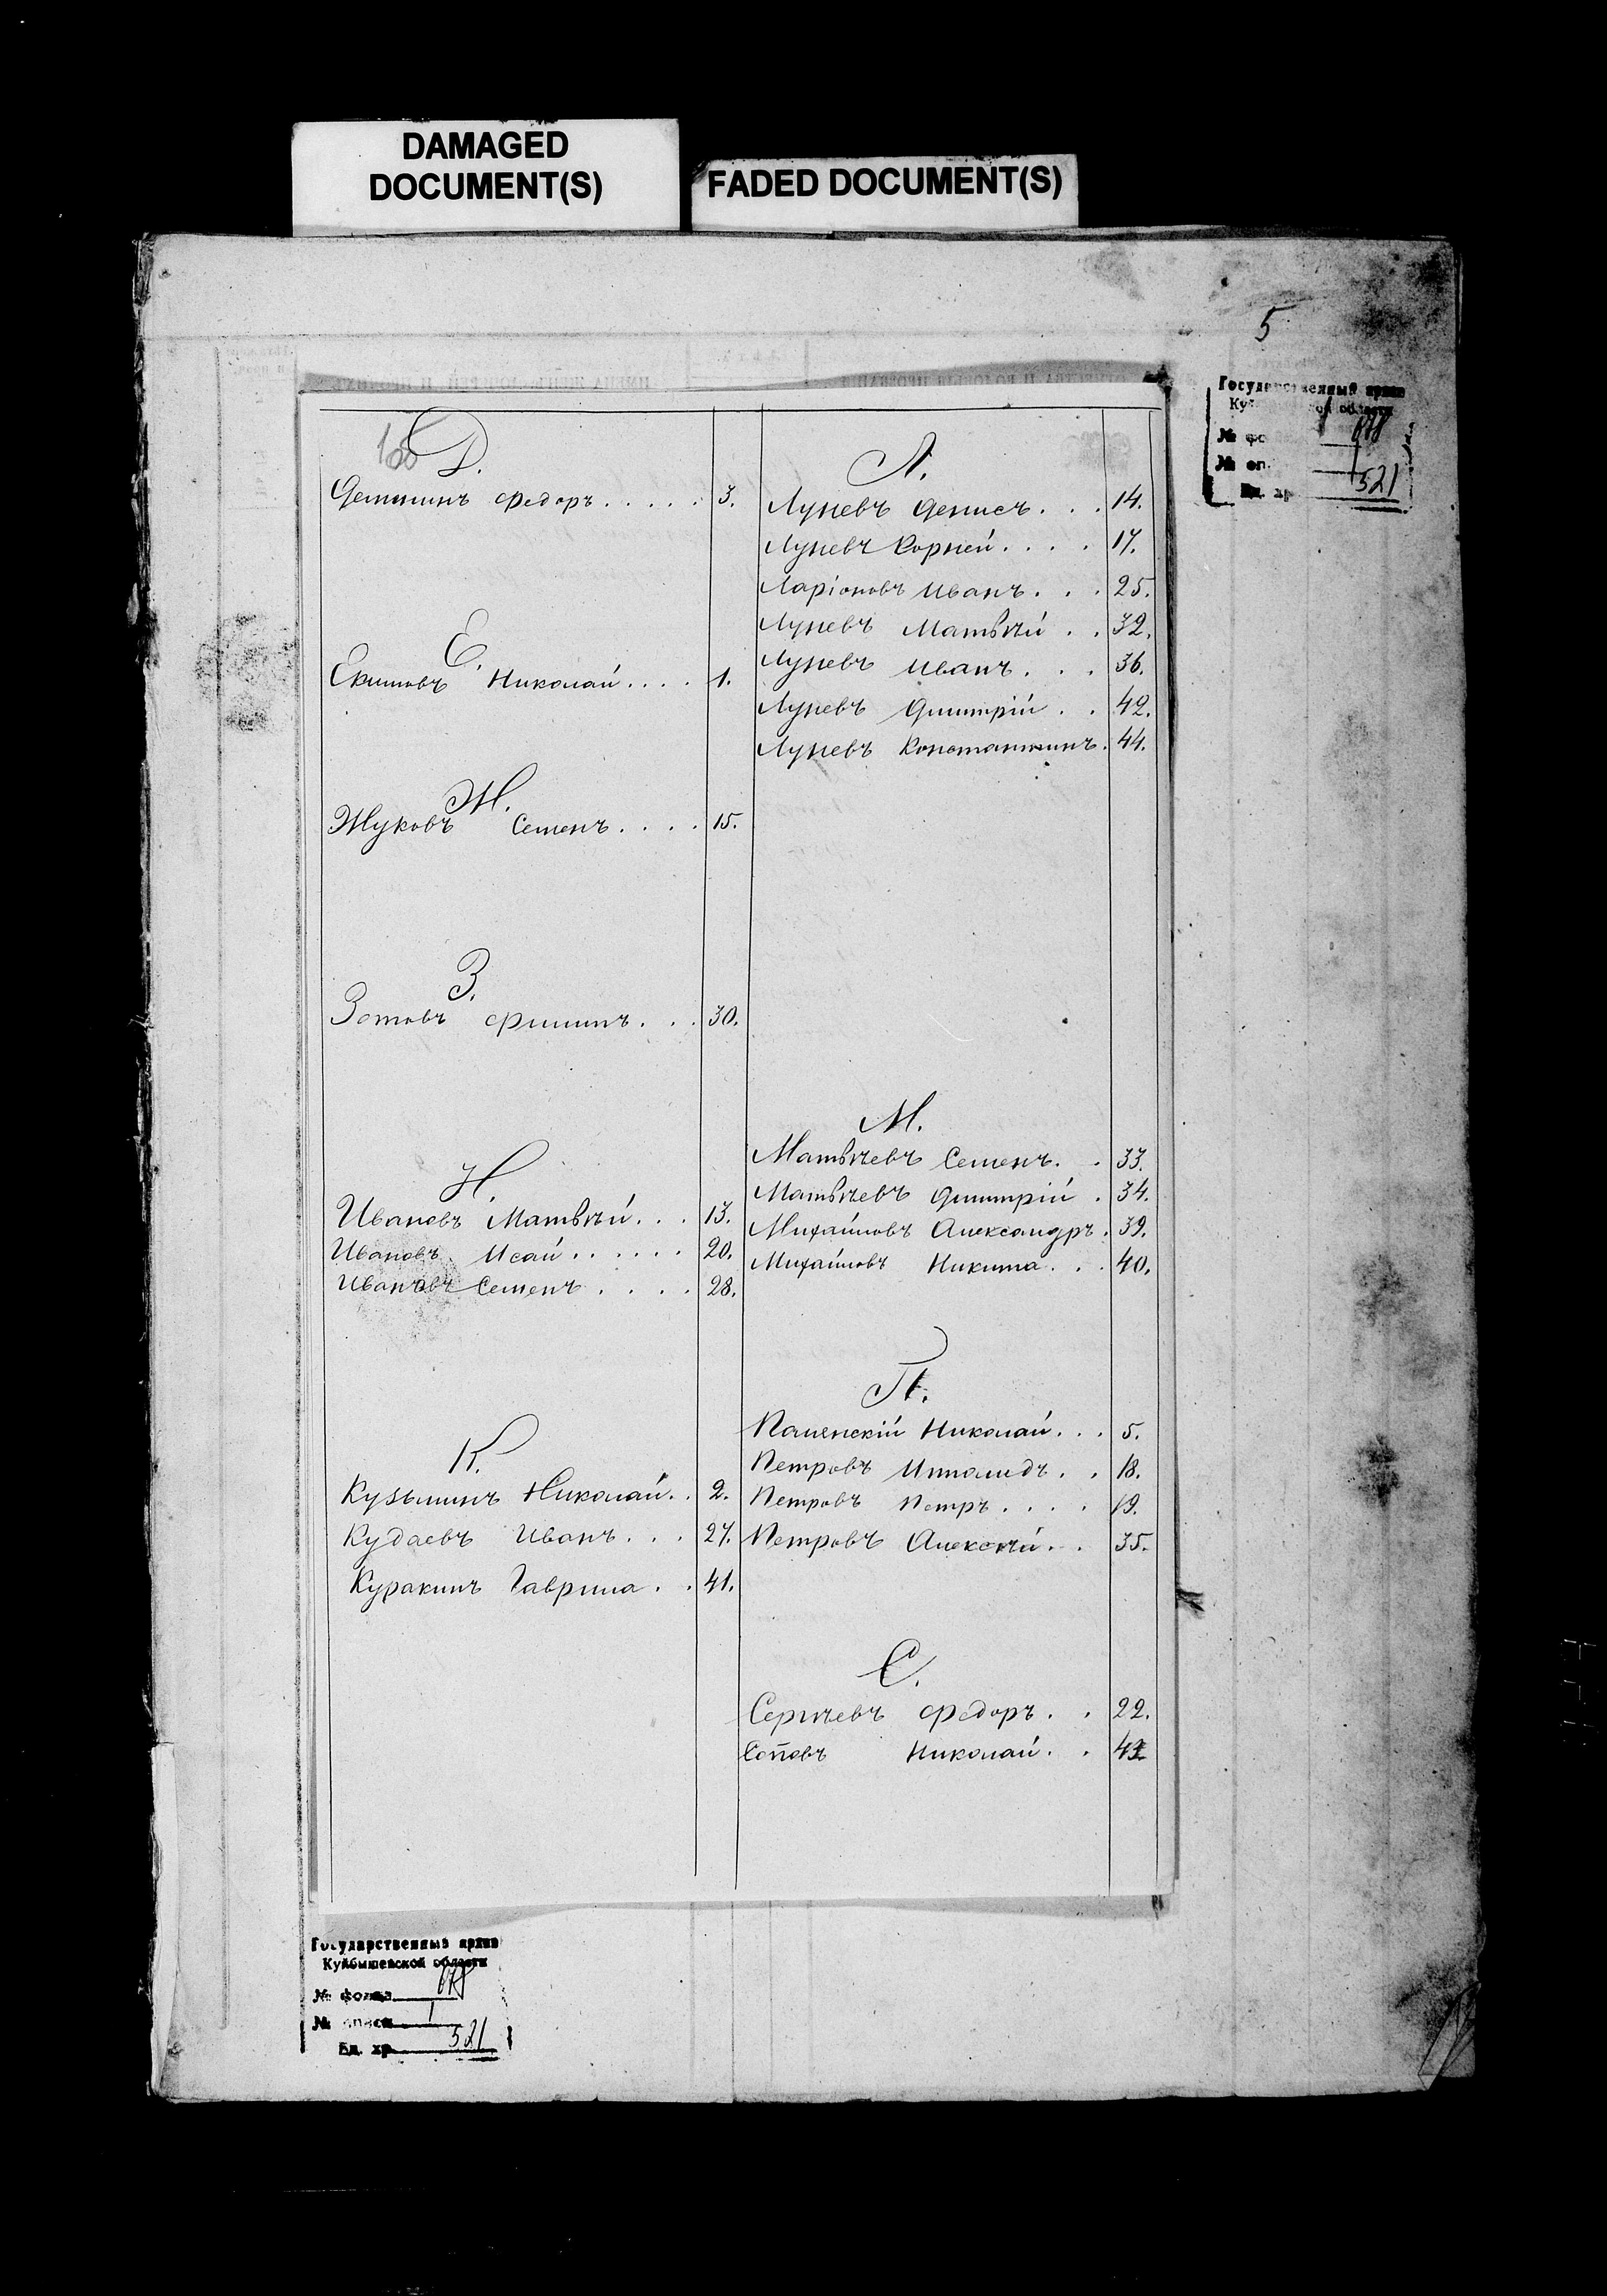 DAMAGED
DOCUMENT(S)
FADED DOCUMENT(S)
5
Государственный архив
№ 
678
№ оп. 1
Ед. хр. 521
Д.
Демшинъ Федоръ . . . . . 3.
Е.
Екимовъ Николай . . . . 1.
Ж.
Жуковъ Семенъ . . . . 15.
З.
Зотовъ Филипъ . . . 30.
И.
Ивановъ Матвѣй . . . 13.
Ивановъ Исай . . . . . . 20.
Ивановъ Семенъ . . . . 28.
К.
Кузьминъ Николай . . 2.
Кудаевъ Иванъ . . . 27.
Куракинъ Гаврила . . 41.
Л.
Луневъ Денисъ . . . 14.
Луневъ Корней . . . . 17.
Ларіоновъ Иванъ . . . 25.
Луневъ Матвѣй . . 32.
Луневъ Иванъ . . . 36.
Луневъ Дмитрій . . 42.
Луневъ Константинъ . 44.
М.
Матвѣевъ Семенъ . . 33.
Матвѣевъ Дмитрій . 34.
Михайловъ Александръ . 39.
Михайловъ Никита . . . 40.
П.
Николай . . . 5.
Петровъ Ипполидъ . . 18.
Петровъ Петръ . . . . 19.
Петровъ Алексѣй . . 35.
С.
Сергѣевъ Федоръ . . 22.
Соповъ Николай . .
Государственный архив
Куйбышевской области
№ фонда 678
№ описи 1
Ед. хр. 521